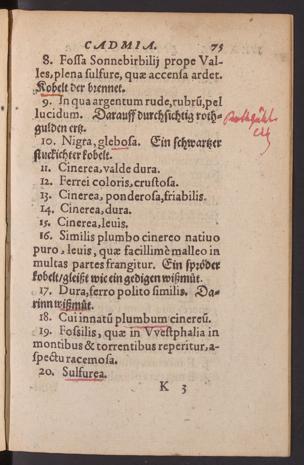 CADMIA. 75
8. Fossa Sonnebirbilij prope Val-
les, plena sulfure, quæ accensa ardet.
Kobelt der brennet.
9. In qua argentum rude, rubrũ, pel
lucidum. Darauff durchsichtig roth-
gulden ertz.
10. Nigra, glebosa. Ein schwartzer
stuckichter kobelt.
11. Cinerea, valde dura.
12. Ferrei coloris, crustosa.
13. Cinerea, ponderosa, friabilis.
14. Cinerea, dura.
15. Cinerea, leuis.
16. Similis plumbo cinereo natiuo
puro, leuis, quæ facillimè malleo in
multas partes frangitur. Ein spröder
kobelt, gleißt wie ein gedigen wißmůt.
17. Dura, ferro polito similis. Da-
rinn wißmůt.
18. Cui innatũ plumbum cinereũ.
19. Fossilis, quæ in VVestphalia in
montibus & torrentibus reperitur, a-
spectu racemosa.
20. Sulfurea.
K 3